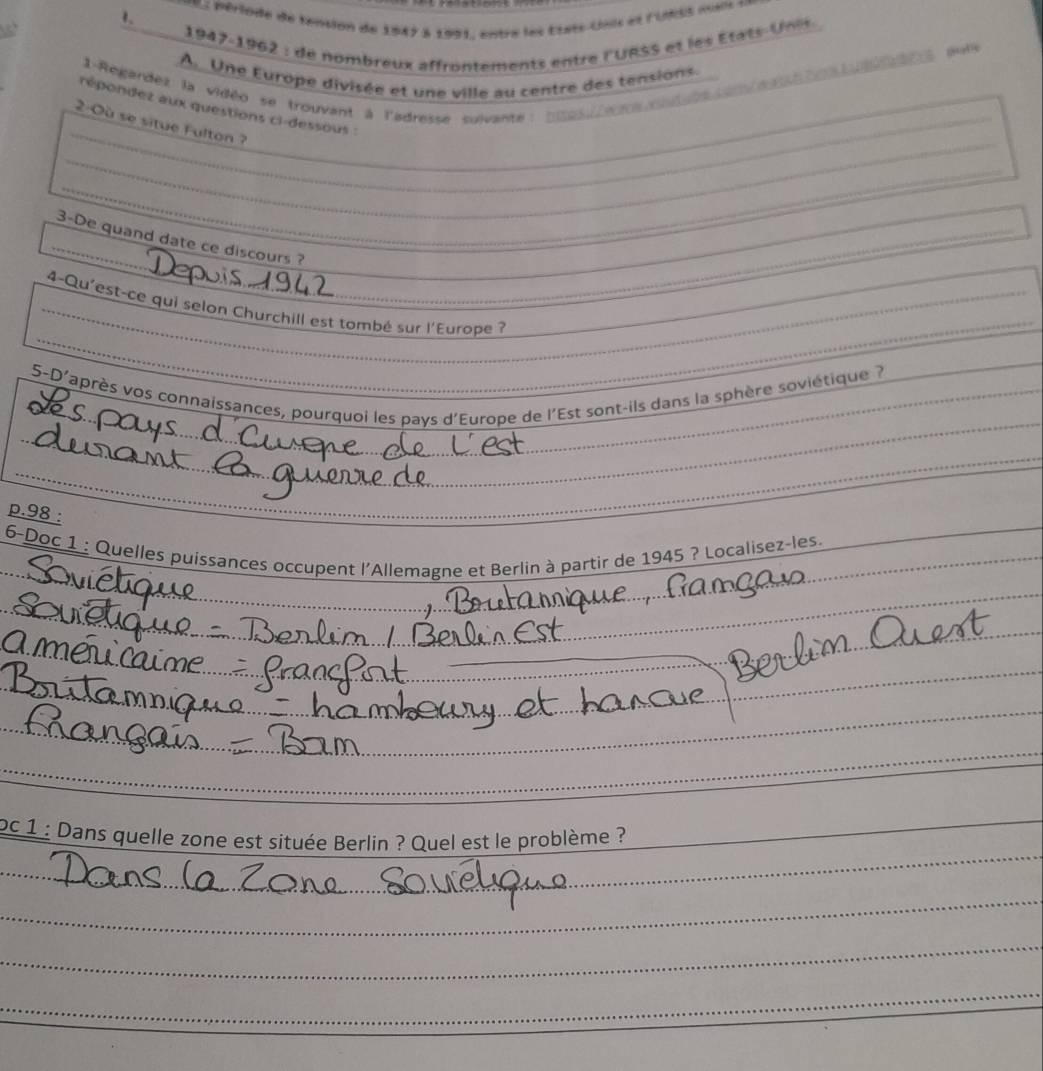 période de tension de 1947 à 1991, entre les Etats-Unis et l'URSS
I. 1947-1962 : de nombreux affrontements entre l'URSS et les Etats-Unis.
A. Une Europe divisée et une ville au centre des tensions.
1-Regardez la vidéo se trouvant à l'adresse suivante : puis
répondez aux questions ci-dessous :
2-Où se situe Fulton ?
3-De quand date ce discours ?
Depuis 1942
4-Qu'est-ce qui selon Churchill est tombé sur l'Europe ?
5-D'après vos connaissances, pourquoi les pays d'Europe de l'Est sont-ils dans la sphère soviétique ?
des pays d'Europe de l'est
durant la guerre de
p.98 :
6-Doc 1 : Quelles puissances occupent l'Allemagne et Berlin à partir de 1945 ? Localisez-les.
Soviétique , Britannique, français
Soviétique = Berlin / Berlin Est
américaine = francfort
Britannique = hambourg et Berlin Ouest
français = Bam
oc 1 : Dans quelle zone est située Berlin ? Quel est le problème ?
Dans la Zone Soviétique